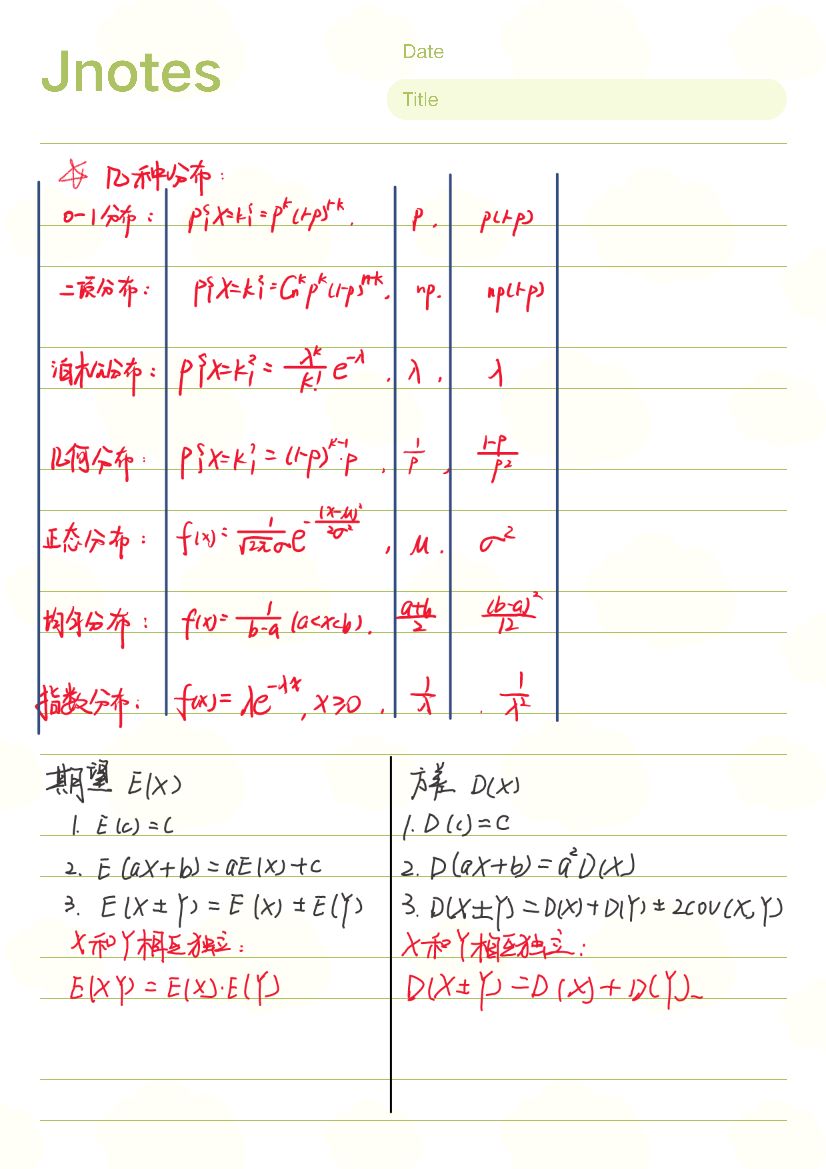 Jnotes
Date
Title
☆ 几种分布：
0-1分布： P{X=k}=p^k(1-p)^{1-k}. p. p(1-p)
二项分布： P{X=k}=C_n^k p^k(1-p)^{n-k}. np. np(1-p)
泊松分布： P{X=k}=\frac{λ^k}{k!}e^{-λ}, λ, λ
几何分布： P{X=k}=(1-p)^{k-1}·p, \frac{1}{p}, \frac{1-p}{p^2}
正态分布： f(x)=\frac{1}{\sqrt{2π}σ}e^{-\frac{(x-μ)^2}{2σ^2}}, μ. σ^2
均匀分布： f(x)=\frac{1}{b-a}(a<x<b). \frac{a+b}{2} \frac{(b-a)^2}{12}
指数分布： f(x)=λe^{-λx}, x≥0. \frac{1}{λ}. \frac{1}{λ^2}
期望 E(X)
1. E(c)=c
2. E(aX+b)=aE(X)+c
3. E(X±Y)=E(X)±E(Y)
X和Y相互独立：
E(XY)=E(X)·E(Y)
方差 D(X)
1. D(c)=c
2. D(aX+b)=a^2D(X)
3. D(X±Y)=D(X)+D(Y)±2cov(X,Y)
X和Y相互独立：
D(X±Y)=D(X)+D(Y)